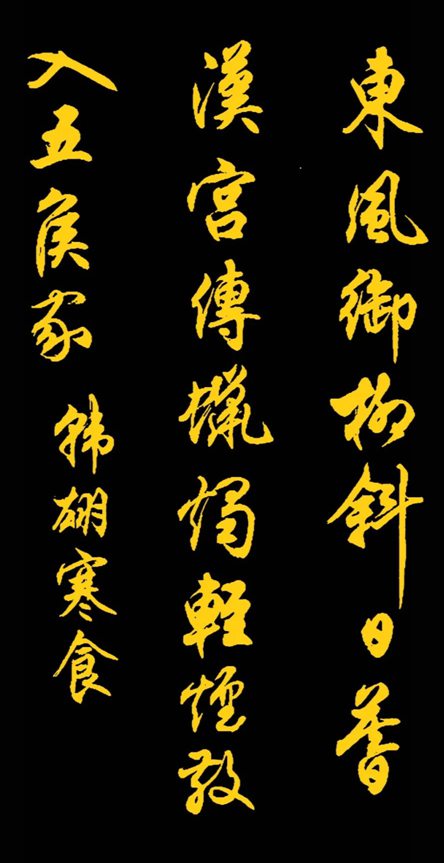 東風御柳斜日暮
漢宮傳蠟燭輕煙散
入五侯家
韩翃寒食